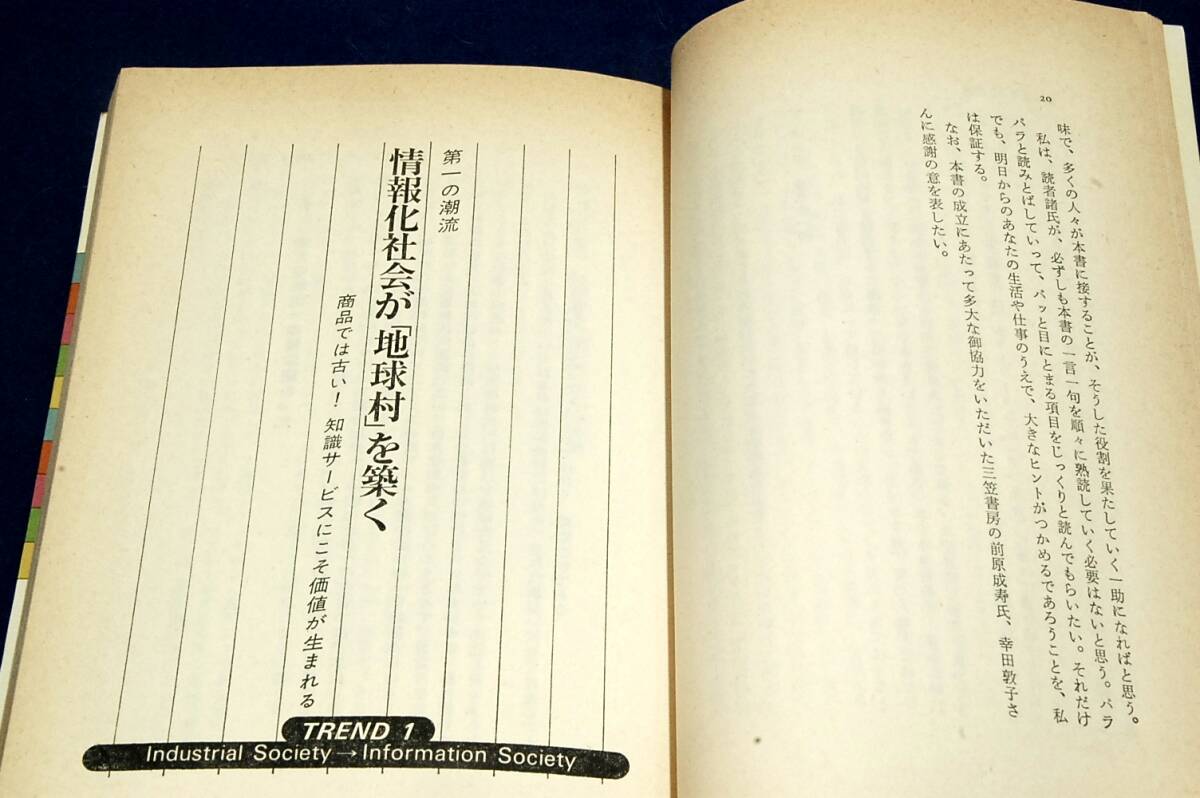 20
味で、多くの人々が本書に接することが、そうした役割を果たしていく一助になればと思う。
私は、読者諸氏が、必ずしも本書の一言一句を順々に熟読していく必要はないと思う。パラ
パラと読みとばしていって、パッと目にとまる項目をじっくりと読んでもらいたい。それだけ
でも、明日からのあなたの生活や仕事のうえで、大きなヒントがつかめるであろうことを、私
は保証する。
なお、本書の成立にあたって多大な御協力をいただいた三笠書房の前原成寿氏、幸田敦子さ
んに感謝の意を表したい。
第一の潮流
情報化社会が「地球村」を築く
商品では古い！知識サービスにこそ価値が生まれる
TREND 1
Industrial Society→Information Society